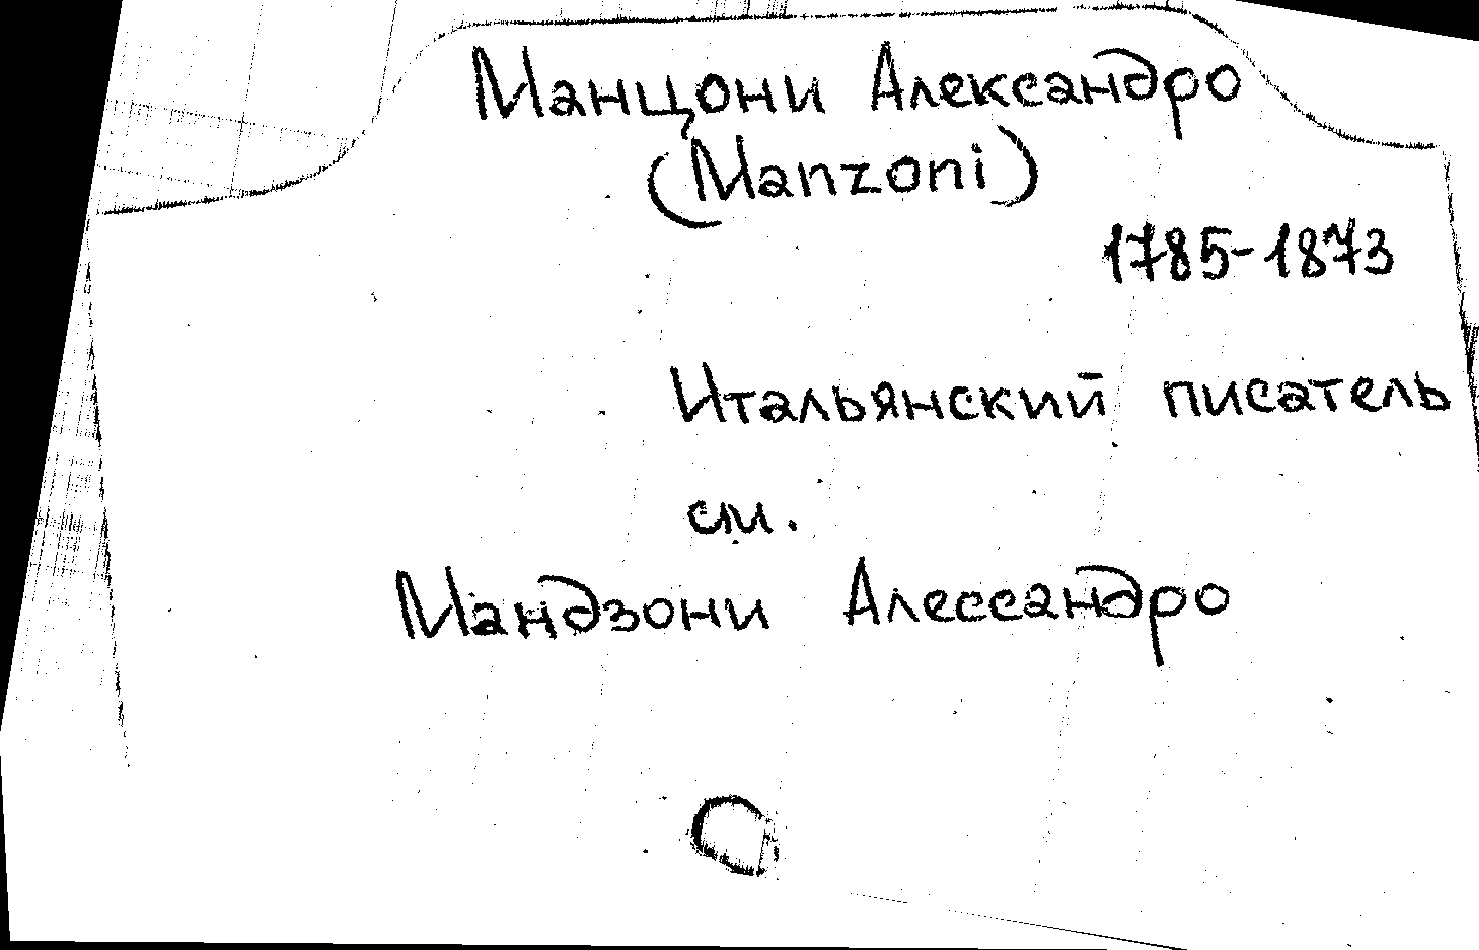 Манцони Александро
(Manzoni)
1785-1873
Итальянский писатель
см.
Мандзони Алессандро